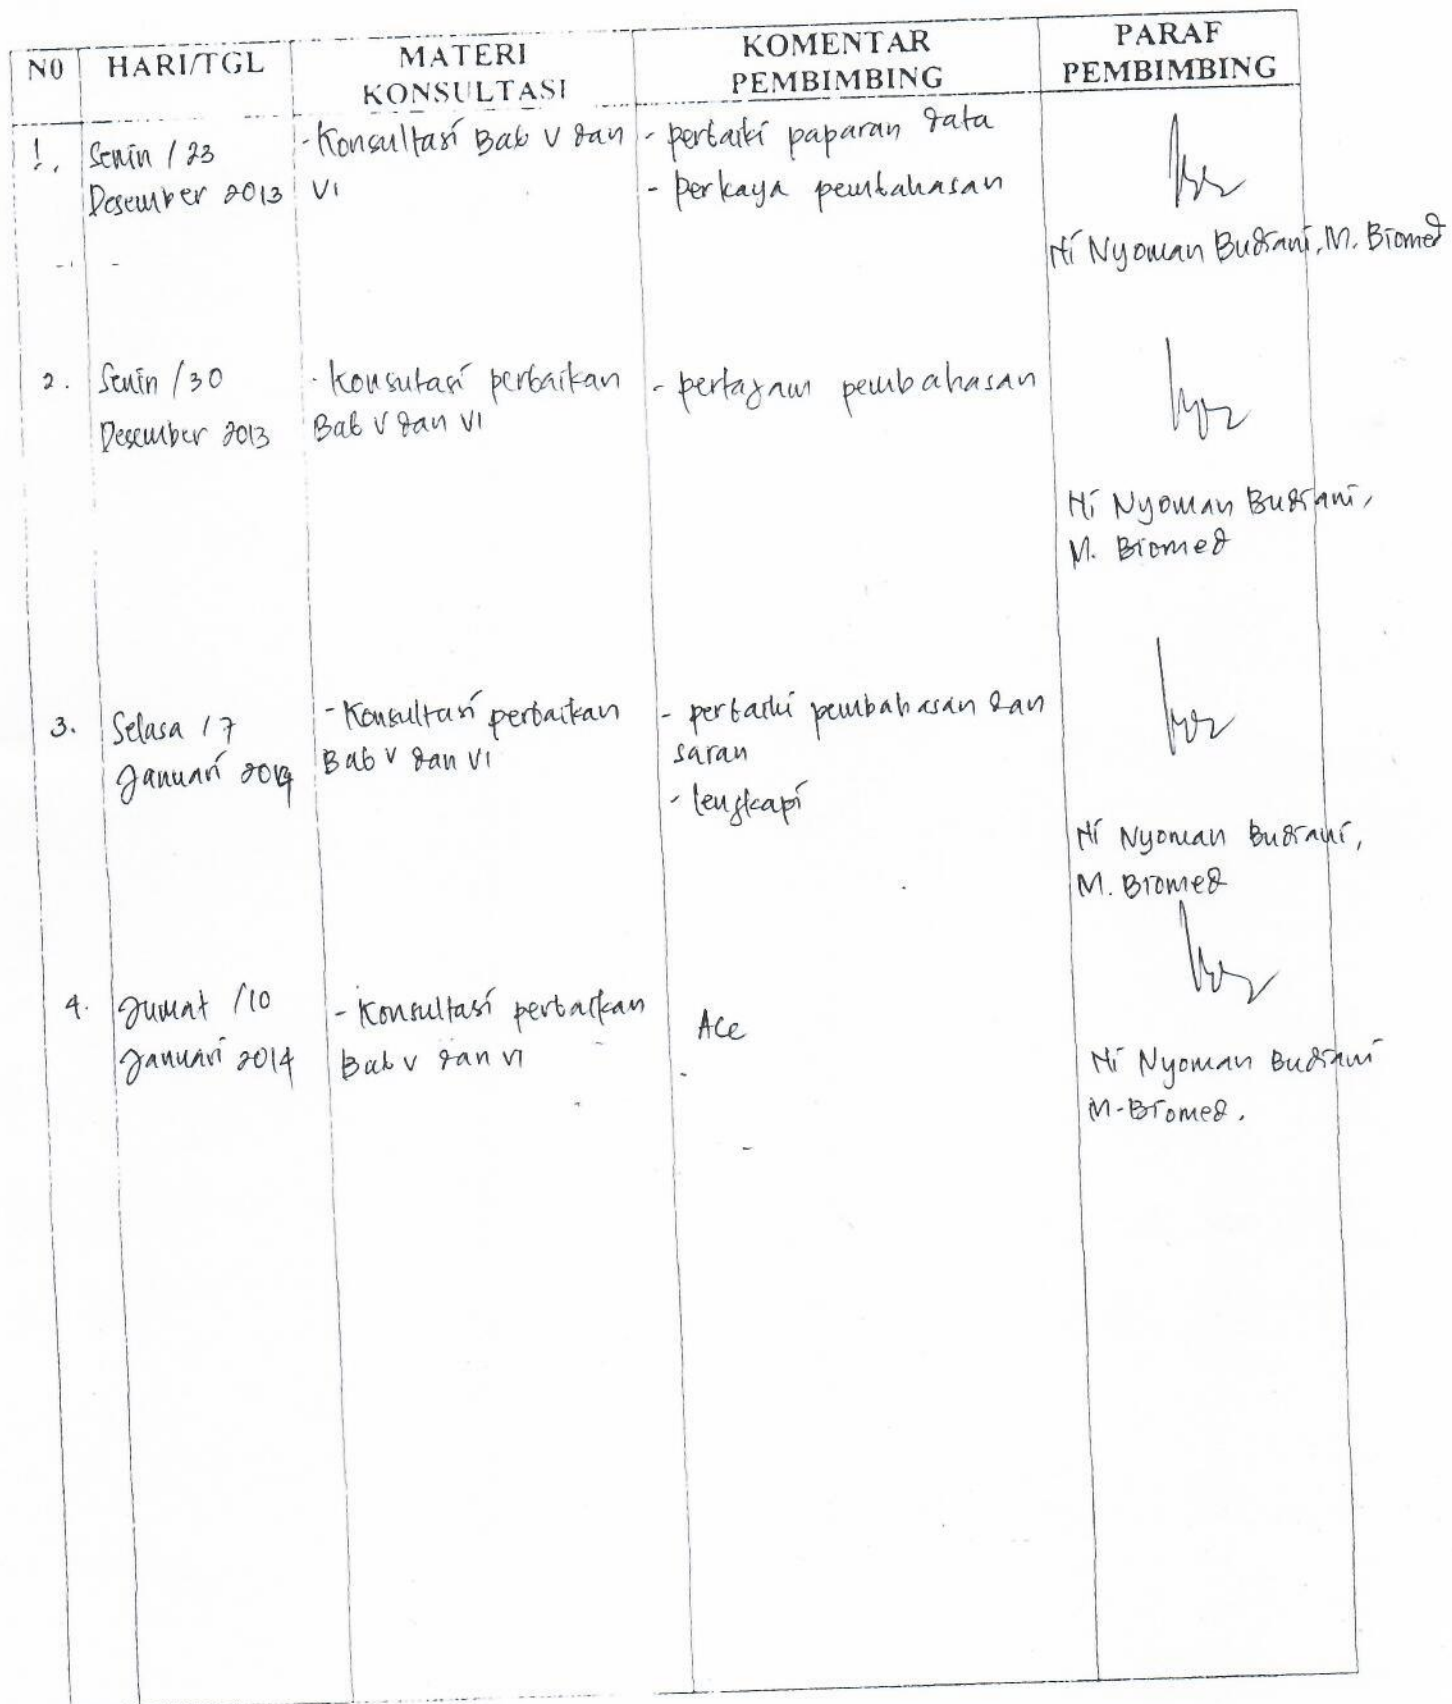 N0 HARI/TGL MATERI KONSULTASI KOMENTAR PEMBIMBING PARAF PEMBIMBING
1. Senin / 23 Desember 2013
- Konsultasi Bab V dan VI
- perbaiki paparan data
- perkaya pembahasan
Ni Nyoman Budiani, M. Biomed
2. Senin / 30 Desember 2013
- Konsutasi perbaikan Bab V dan VI
- pertajam pembahasan
Ni Nyoman Budiani,
M. Biomed
3. Selasa / 7 Januari 2014
- Konsultasi perbaikan Bab V dan VI
- perbaiki pembahasan dan saran
- lengkapi
Ni Nyoman Budiani,
M. Biomed
4. Jumat / 10 Januari 2014
- Konsultasi perbaikan Bab V dan VI
Acc
Ni Nyoman Budiani
M. Biomed.